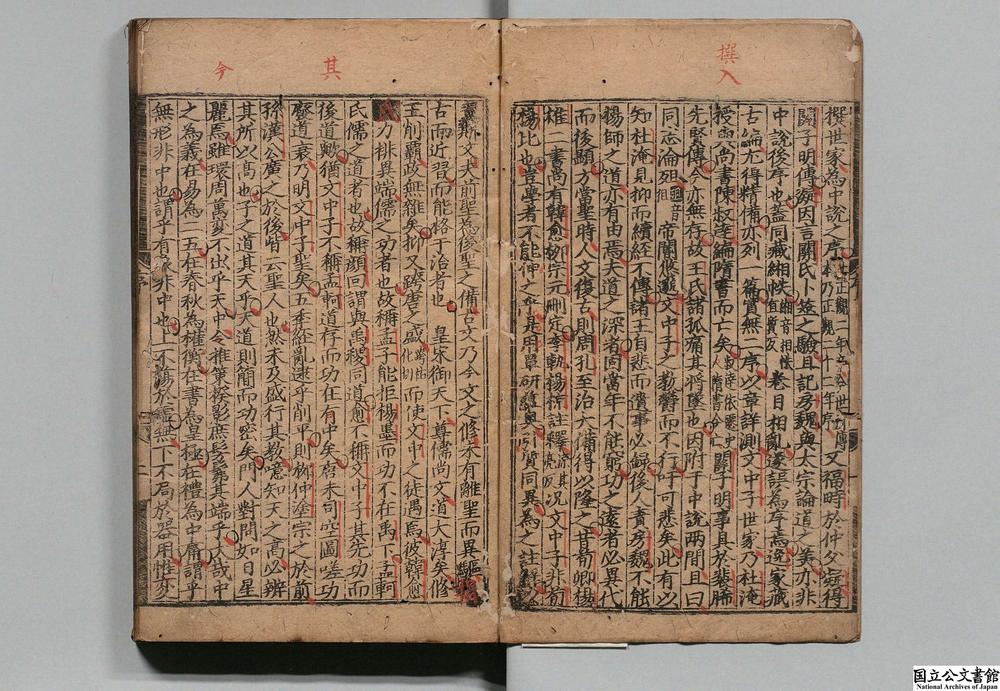 撰
入
撰世家為中說之序正觀二年又福畤於仲父凝得
關子明傳疑因言關氏卜筮之驗且記房魏與太宗論道之美亦非
中說後序也蓋同藏緗帙卷目相亂遂誤為序焉逸家藏
古編尤得精備亦列十篇實無二序以章詳測文中子世家乃杜淹
授與尚書陳叔達編隋書而亡矣關子明事具於裴晞
先賢傳今亦無存故王氏諸孤痛其將墜也因附于中說兩間且曰
同志淪殂帝閽悠邈文中子之教鬱而不行吁可悲矣此有以
知杜淹見抑而續經不傳諸王自悲而遺事必錄後人責房魏不能
揚師之道亦有由焉夫道之深者固當年不能窮功之遠者必異代
而後顯方當聖時人文復古則周孔至治大備得以隆之昔荀卿揚
雄二書尚有韓愈柳宗元刪定李軌楊倞註釋况文中子非荀
揚比也豈學者不能伸之乎是用覃研蘊奧引質同異為之註解以
其
今
翼斯文夫前聖為後聖之備古文乃今文之修未有離聖而異驅捐
古而近習而能格于治者也 皇宋御天下尊儒尚文道大淳矣修
王削霸政無雜矣抑又跨唐之盛而使文中之徒遇焉彼韓愈
氏力排異端儒之功者也故稱孟子能拒楊墨而功不在禹下孟軻
氏儒之道者也故稱顏回謂與禹稷同道愈不稱文中子其先功而
後道歟猶文中子不稱孟軻道存而功在有中矣唐末司空圖嗟功
廢道衰乃明文中子聖矣五季經亂逮乎削平則柳仲塗宗之於前
孫漢公廣之於後皆云聖人也然未及盛行其教噫知天之高必辨
其所以高也子之道其天乎天道則簡而功密矣門人對問如日星
麗焉雖環周萬變不出乎天中今推策揆影庶髣髴其端乎大哉中
之為義在易為二五在春秋為權衡在書為皇極在禮為中庸謂乎
無形非中也謂乎有象非中也上不蕩於虛無下不局於器用惟變
国立公文書館
National Archives of Japan